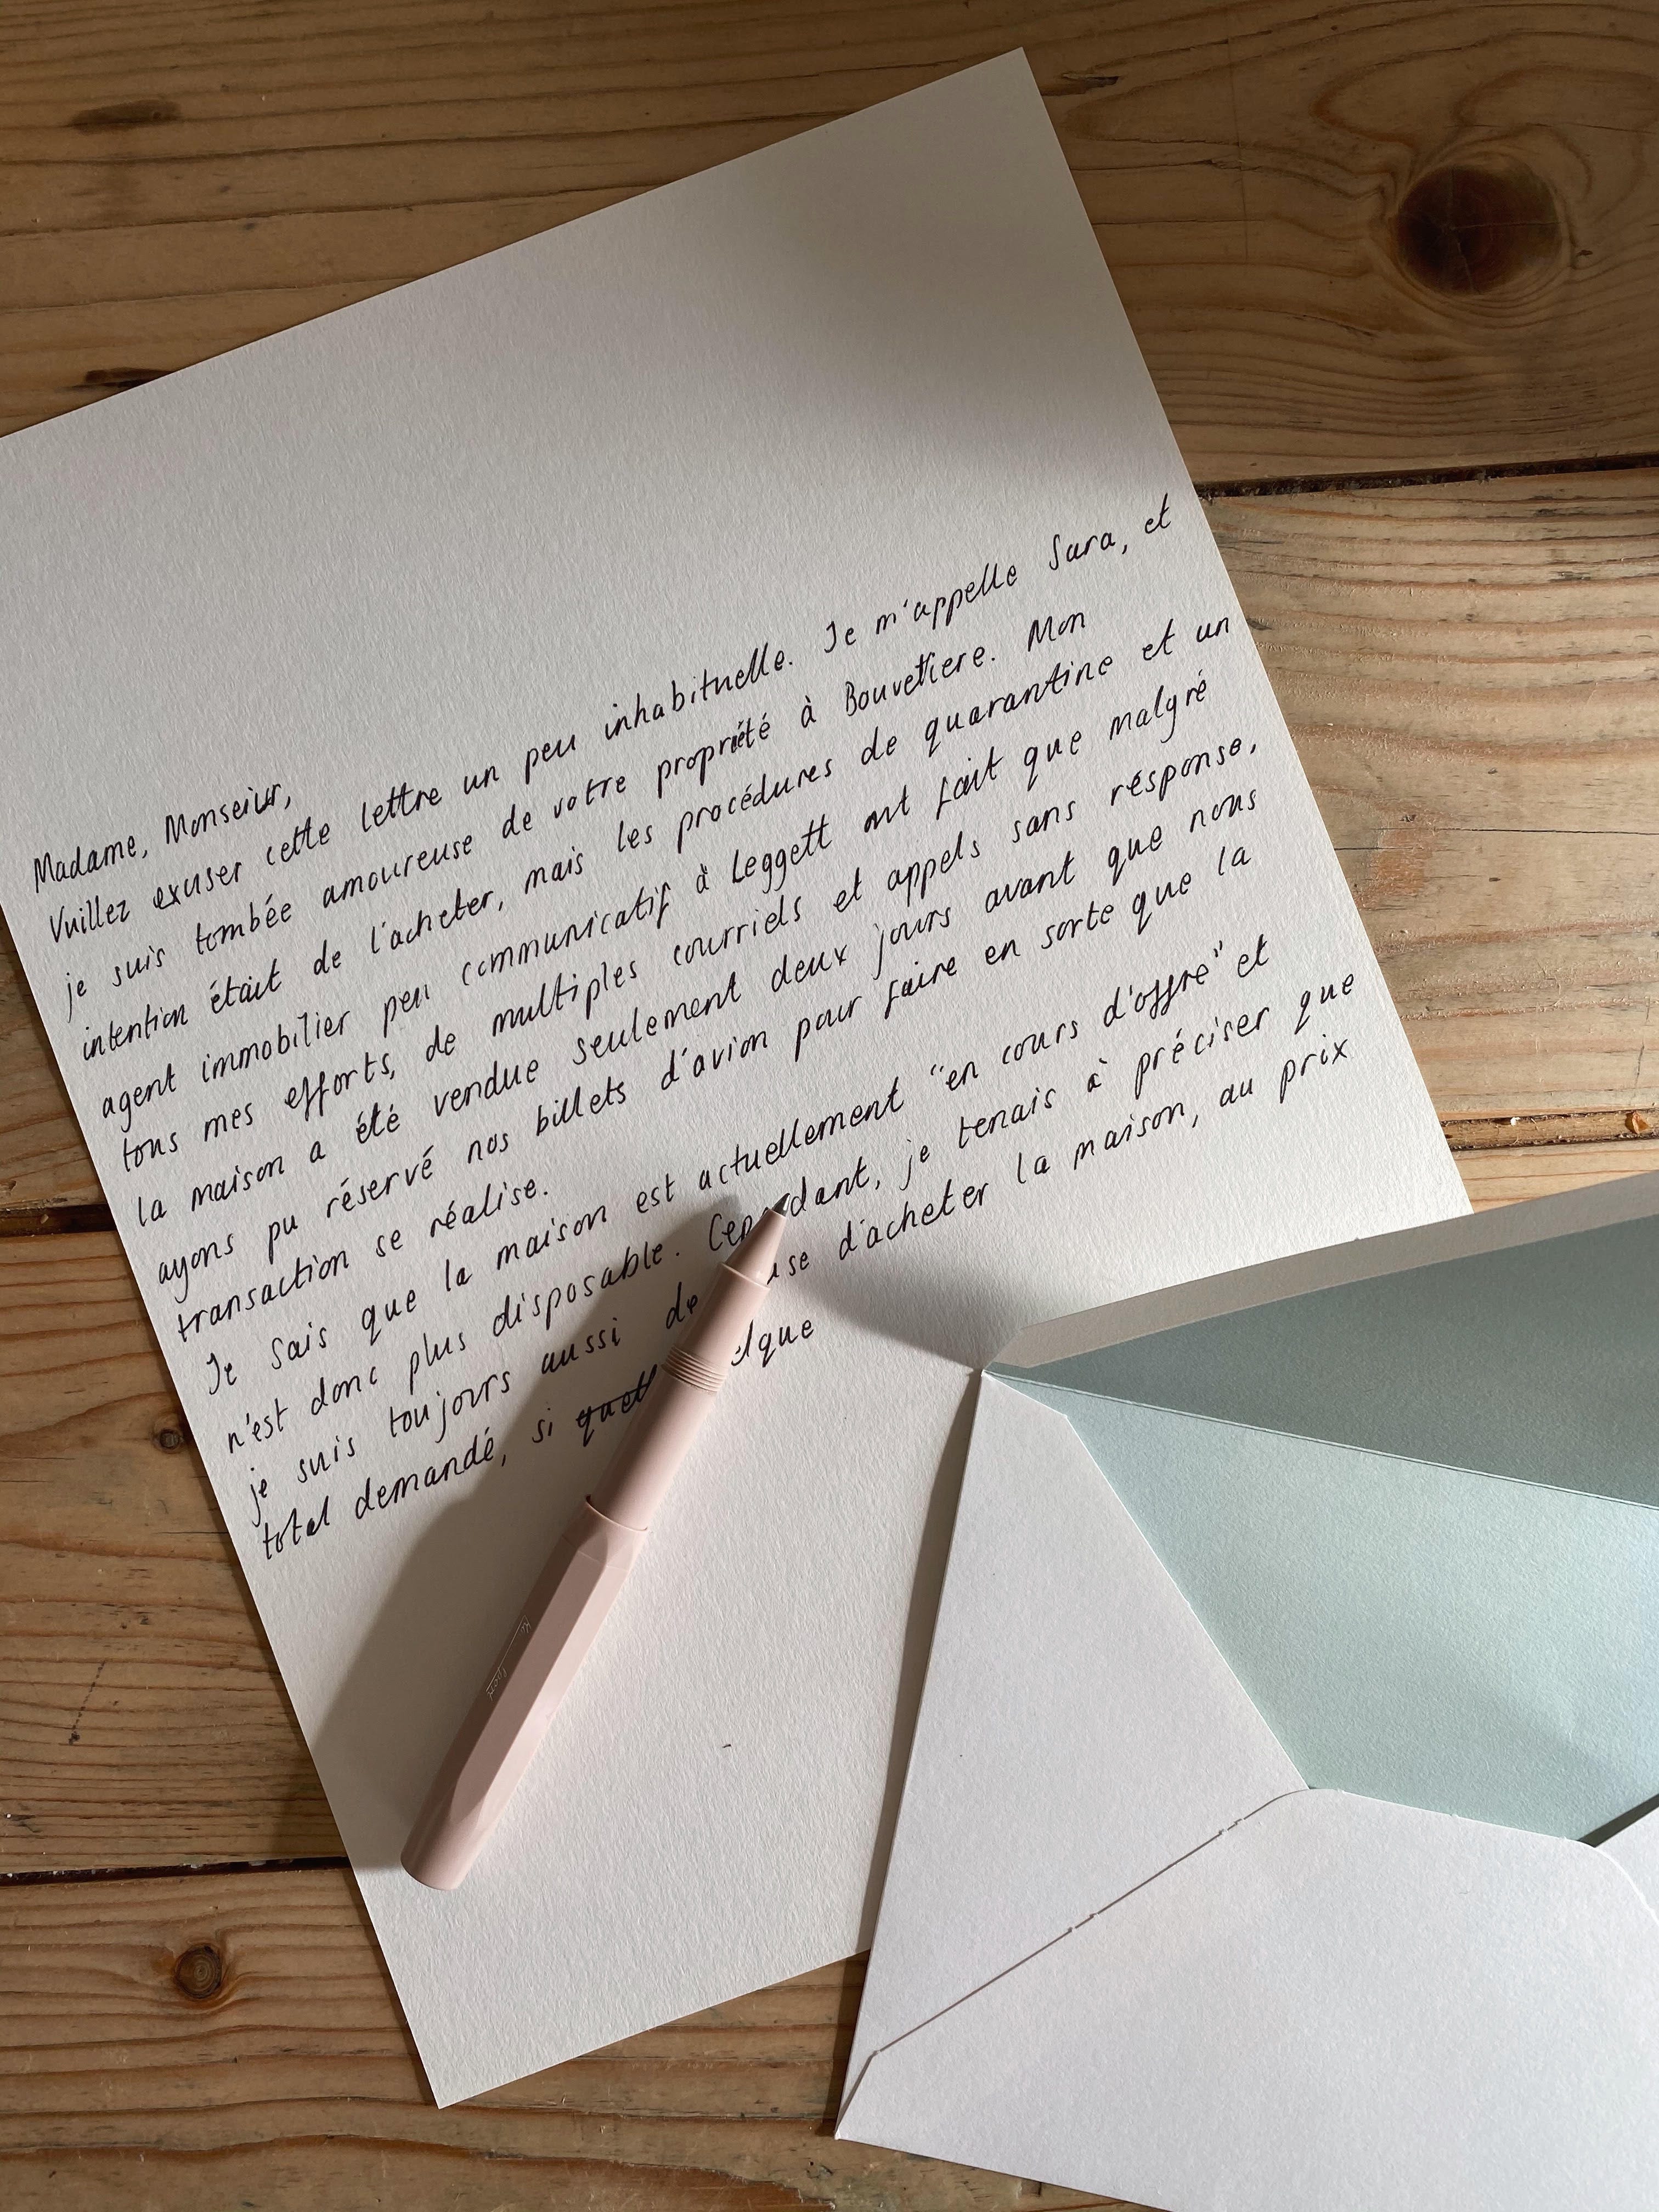 Madame, Monseiur,
Vuillez exuser cette lettre un peu inhabituelle. Je m'appelle Sara, et
je suis tombée amoureuse de votre propriété à Bouvetiere. Mon
intention était de l'acheter, mais les procédures de quarantine et un
agent immobilier peu communicatif à Leggett ont fait que malgré
tous mes efforts, de multiples courriels et appels sans résponse,
la maison a été vendue seulement deux jours avant que nous
ayons pu réservé nos billets d'avion pour faire en sorte que la
transaction se réalise.
Je sais que la maison est actuellement "en cours d'offre" et
n'est donc plus disposable. Cependant, je tenais à préciser que
je suis toujours aussi d'acheter la maison, au prix
total demandé, si
Sport